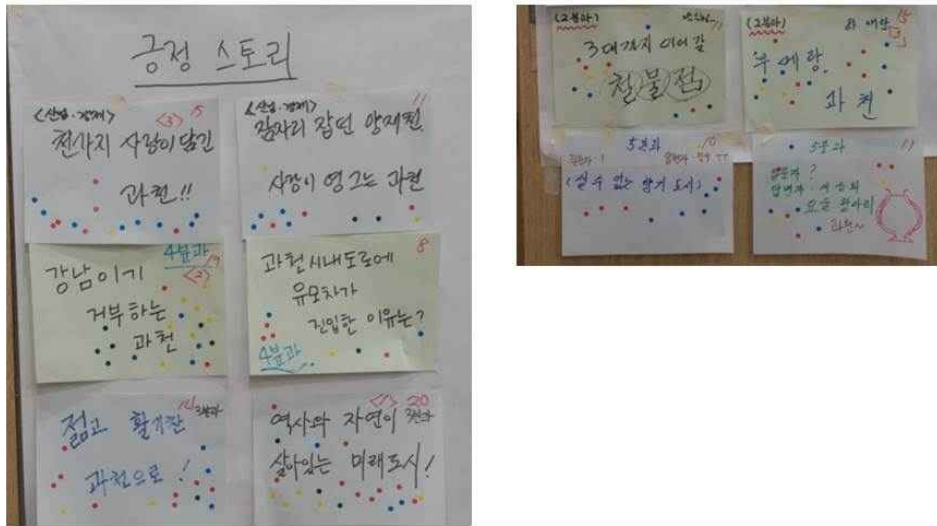 긍정 스토리
<산업·경제> <3> 15
천가지 사랑이 담긴
과천!!
<산업·경제> 11
잠자리 잡던 양재천
사랑이 영그는 과천
4분과
<2>
강남이기
거부하는
과천
8
과천시내도로에
유모차가
진입한 이유는?
4분과
14 3분과
젊고 활기찬
과천으로!
<1> 20
3분과
역사와 자연이
살아있는 미래도시!
(2분과)
3대까지 이어갈
철물점
(2분과) 15
과천
5분과 10
(살 수 없는 향기 도시)
5분과 11
질문자?
답변자
항아리
과천